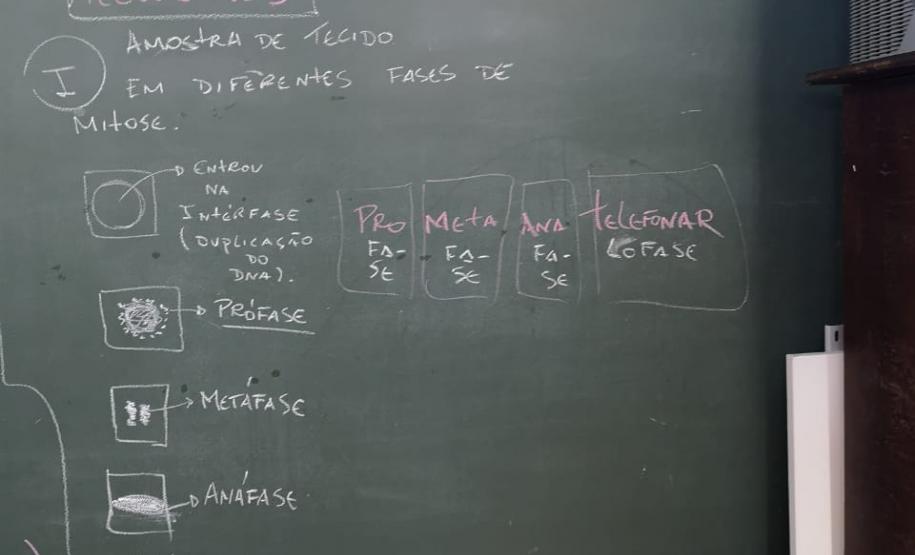 I
AMOSTRA DE TECIDO
EM DIFERENTES FASES DE
MITOSE.
ENTROU
NA
INTÉRFASE
(DUPLICAÇÃO
DO
DNA).
PRÓFASE
METÁFASE
ANÁFASE
PRO META ANA TELEFONAR
FA- FA- FA- LOFASE
SE SE SE